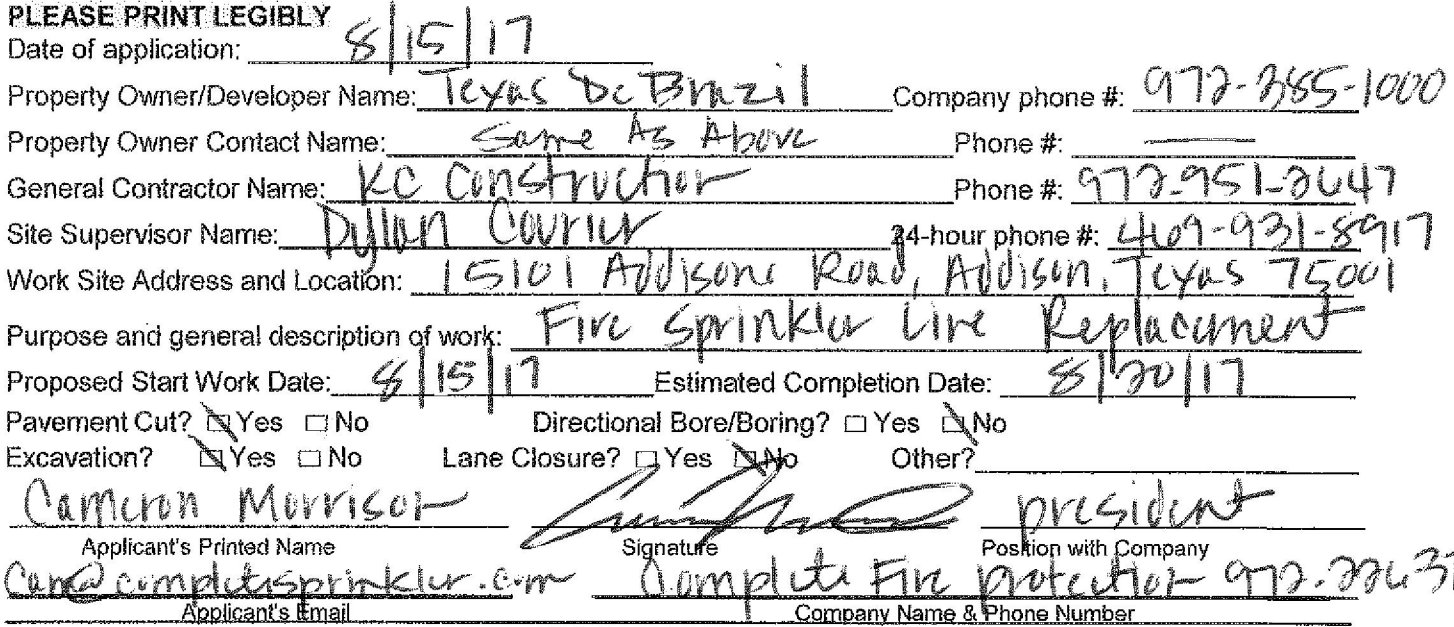 PLEASE PRINT LEGIBLY
Date of application: 8/15/17
Property Owner/Developer Name: Texas De Brazil Company phone #: 972-385-1000
Property Owner Contact Name: Same As Above Phone #: —
General Contractor Name: KC Construction Phone #: 972-951-2647
Site Supervisor Name: Dylan Courier 24-hour phone #: 469-931-8917
Work Site Address and Location: 15101 Addisone Road, Addison, Texas 75001
Purpose and general description of work: Fire Sprinkler Line Replacement
Proposed Start Work Date: 8/15/17 Estimated Completion Date: 8/20/17
Pavement Cut? Yes No Directional Bore/Boring? Yes No
Excavation? Yes No Lane Closure? Yes No Other?
Cameron Morrison president
Applicant's Printed Name Signature Position with Company
Cam@completesprinkler.com Complete Fire protection 972-22637
Applicant's Email Company Name & Phone Number